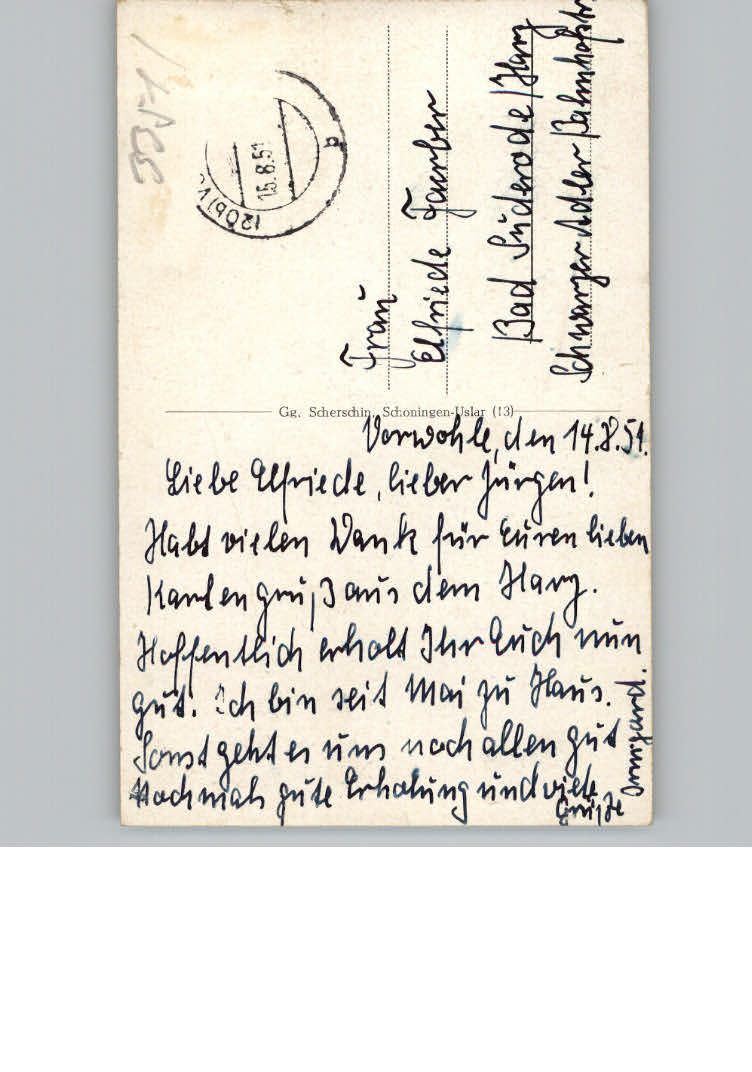 33-1/
(20b) V
15.8.51
b
Frau
Elfriede Tauber
Bad Suderode/Harz
Schwarzer Adler Bahnhofstr.
Gg. Scherschin, Schoningen-Uslar (13)
Vorwohle, den 14.8.51.
Liebe Elfriede, lieber Jürgen!
Habt vielen Dank für Euren lieben
Kartengruß aus dem Harz.
Hoffentlich erholt Ihr Euch nun
gut. Ich bin seit Mai zu Haus.
Sonst geht es uns noch allen gut
Nochmals gute Erholung und viele
Grüße
Irmgard.